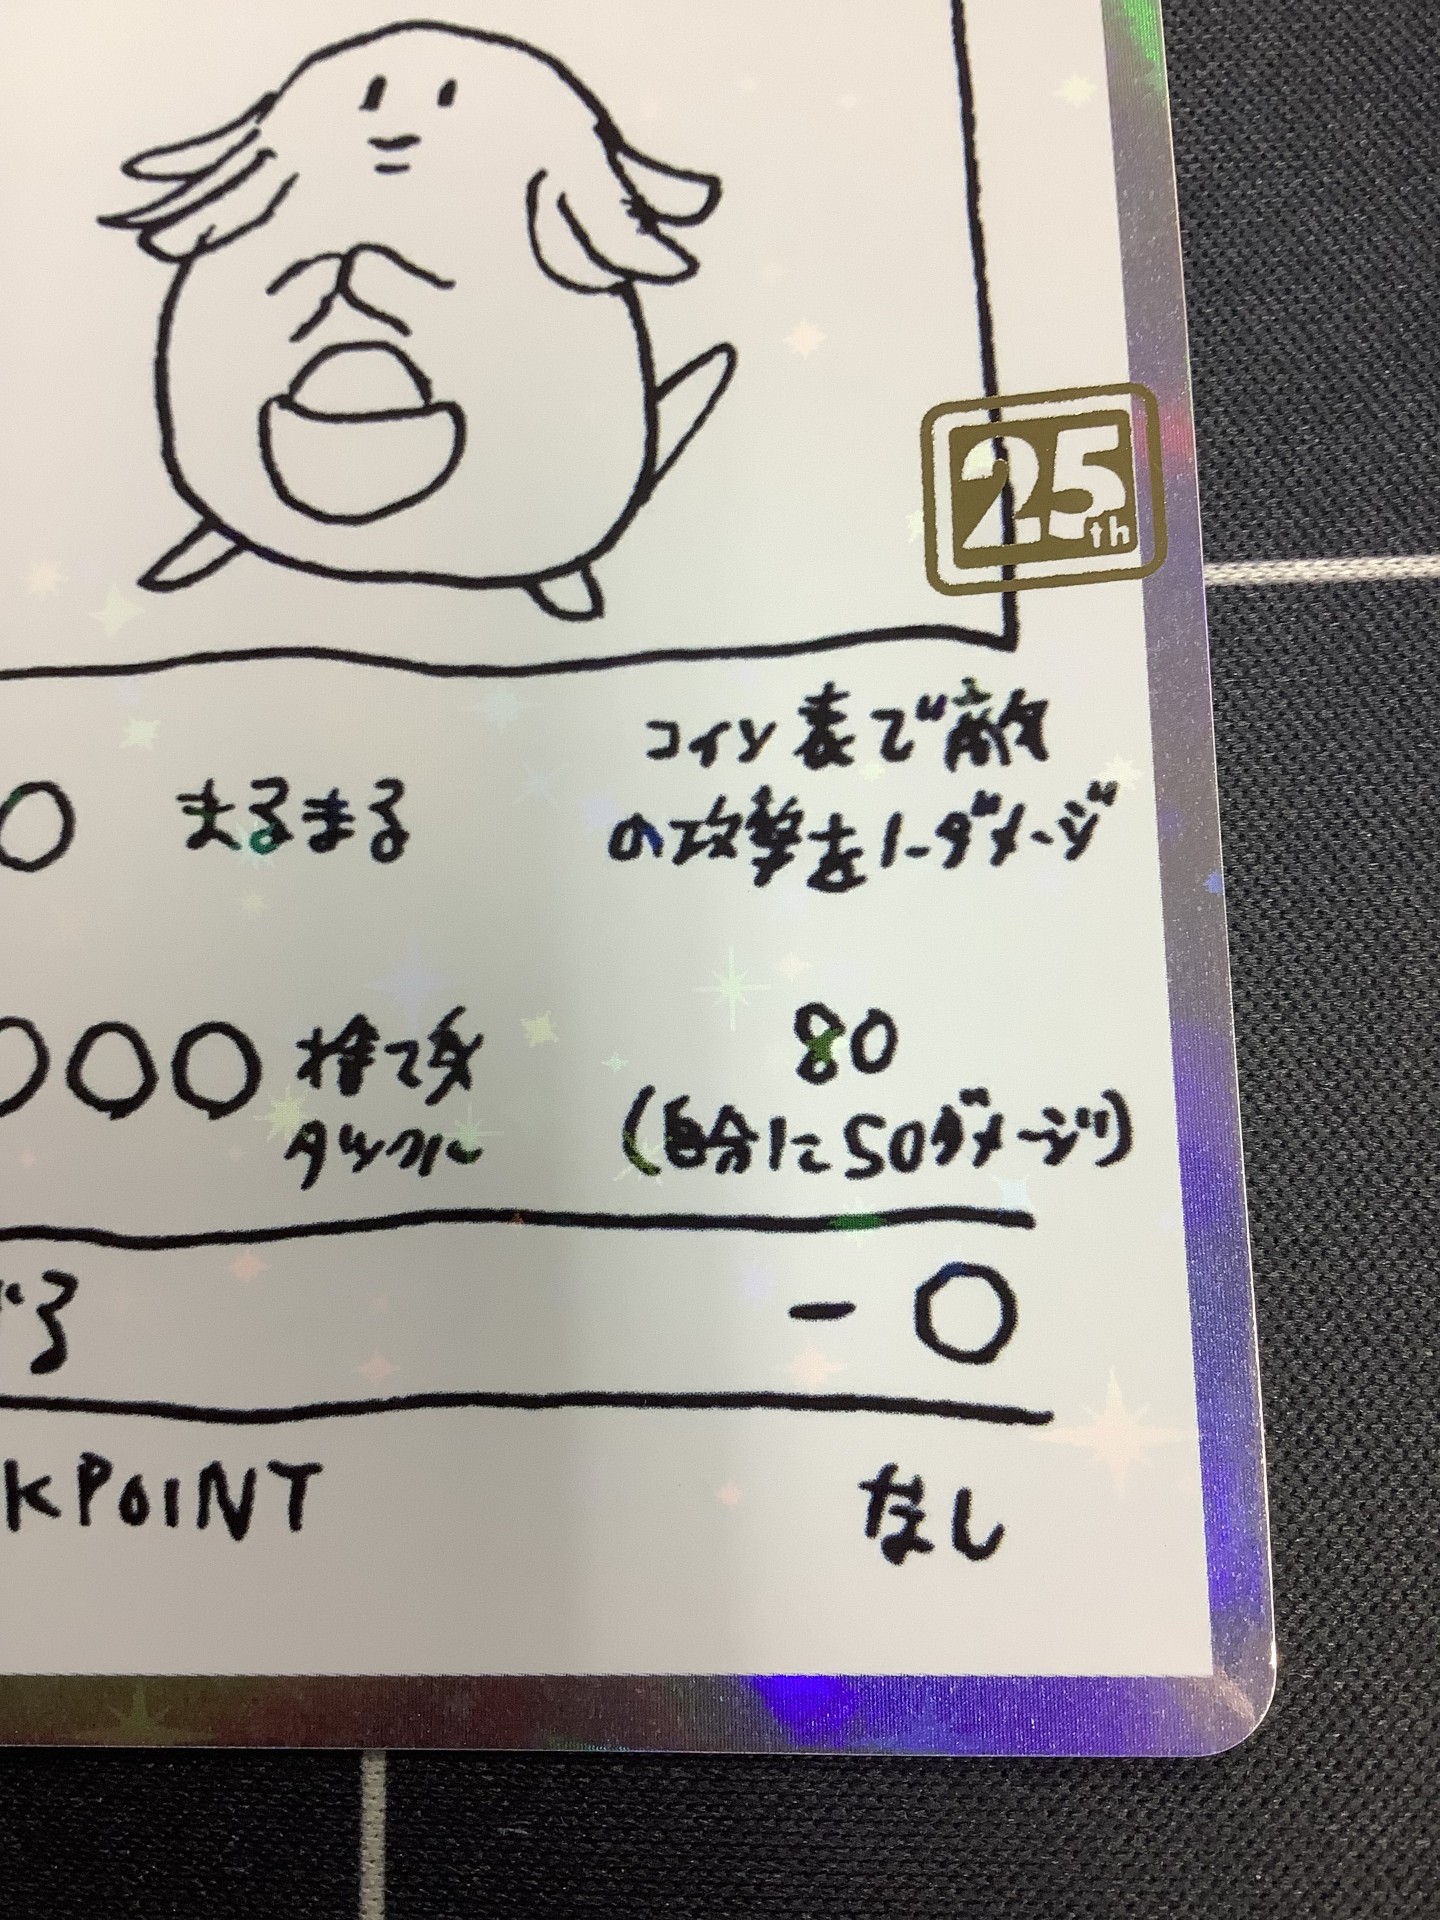 25th
コイン表で敵
の攻撃をノーダメージ
○ まるまる
80
○○○ 捨て身
タックル
(自分に50ダメージ)
－○
KPOINT なし